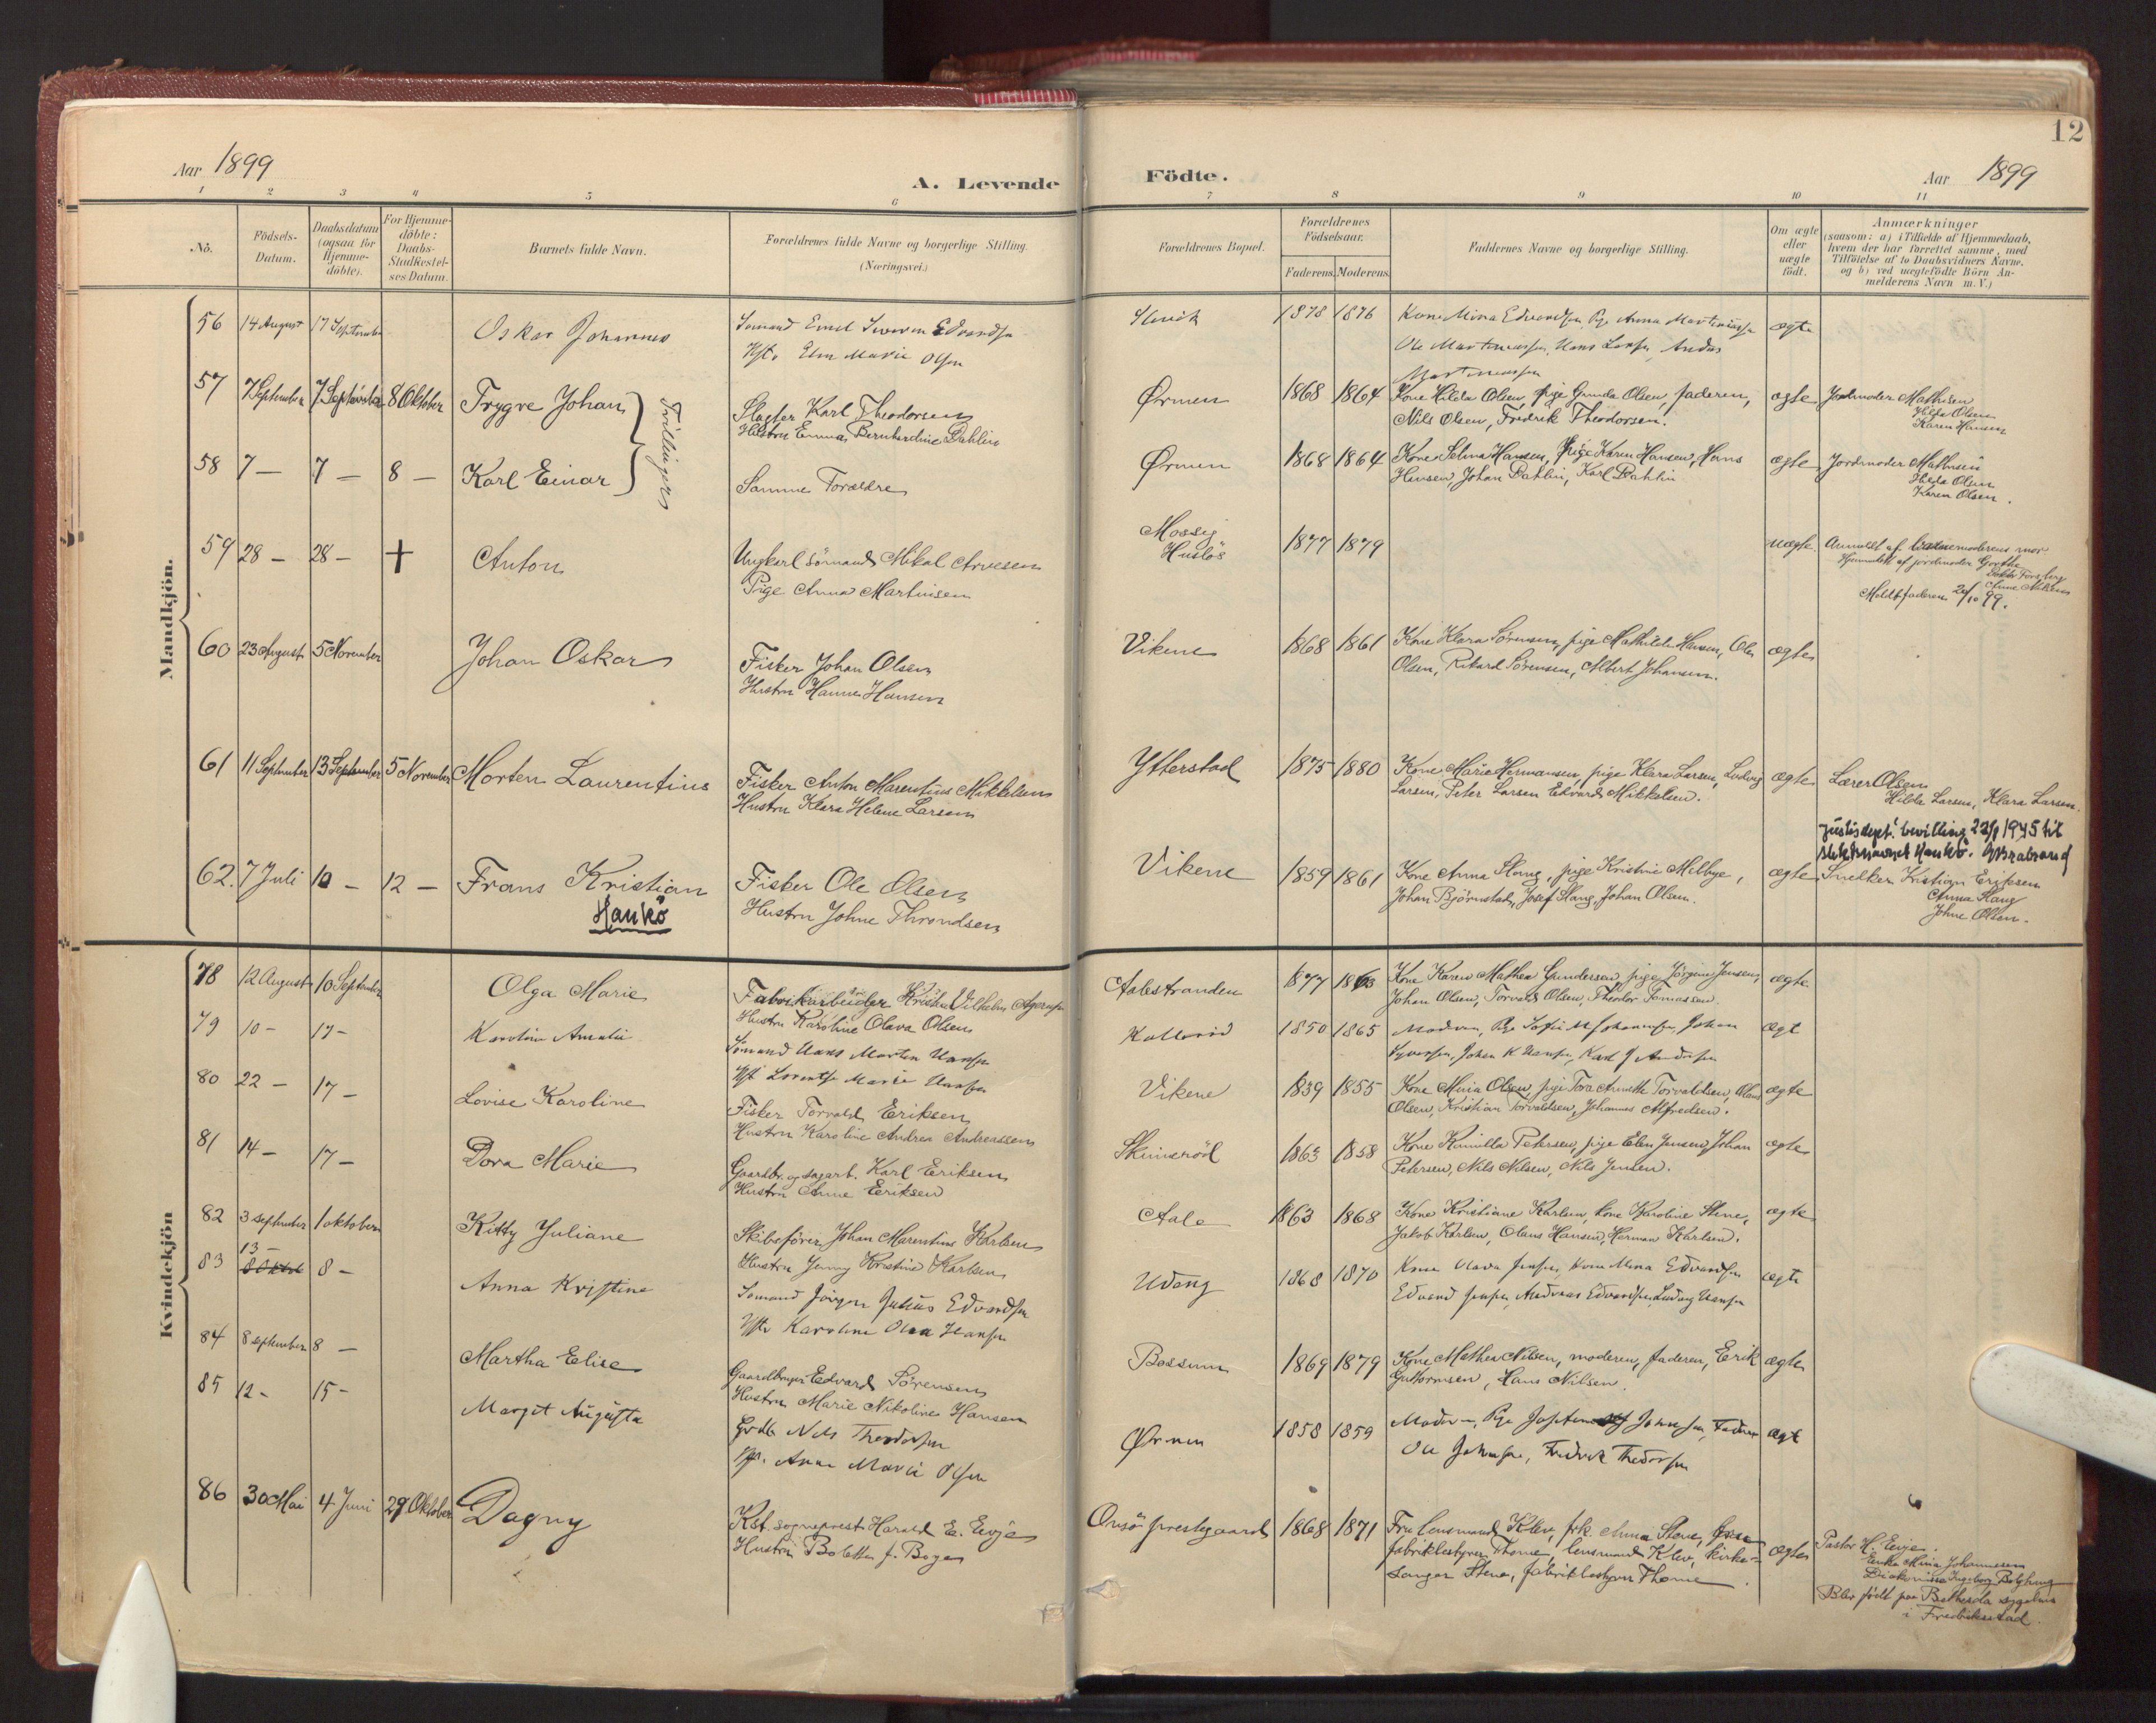 12
Aar 1899
A. Levende Födte.
Aar 1899
1 2 3 4 5 6 7 8 9 10 11
No.
Födsels-Datum.
Daabsdatum (ogsaa for Hjemme-döbte).
For Hjemme-döbte: Daabs-Stadfæstel-ses Datum.
Barnets fulde Navn.
Forældrenes fulde Navne og borgerlige Stilling.
(Næringsvei.)
Forældrenes Bopæl.
Forældrenes Födselsaar.
Faderens. Moderens.
Faddernes Navne og borgerlige Stilling.
Om ægte eller uægte födt.
Anmærkninger
(saasom: a) i Tilfælde af Hjemmedaab,
hvem der har forrettet samme, med
Tilföielse af to Daabsvidners Navne.
og b) ved uægtefödte Börn An-
melderens Navn m.V.)
Mandkjön.
56 14 August 17 September Oskar Johannes
1878 1876 Kone Mina Edvardsen, Pige Anna Martiniussen ægte
Hstr. Marie Olsen
57 7 September 7 September 8 Oktober Trygve Johan
Trillinger
Karl Theodorsen
Hustru Emma Bernhardine Dahlin
Ørmen 1868 1864 Kone Hilda Olsen, pige Gunda Olsen, faderen, ægte Jordmoder Mathisen
Nils Olsen, Fredrik Theodorsen.
Hilda Olsen
Karen Hansen
58 7 — 7 — 8 — Karl Einar
Samme Forældre
Ørmen 1868 1864 Kone Selma Hansen, pige Karen Hansen, Hans ægte Jordmoder Mathisen
Hansen, Johan Dahlin, Karl Dahlin
Hilda Olsen
Karen Olsen.
59 28 — 28 — + Anton
Ungkarl sömand Mikal Arvesen
Pige Anna Martinsen
Mossig
Huslös
1877 1879 uægte.
Anmeldt af barnemoderens mor
Hjemmedöbt af jordmoder
Meldt faderen 20/10 99.
60 23 August 5 November Johan Oskar
Fisker Johan Olsen
Hustru Hanna Hansen
Vikene 1868 1861 Kone Klara Sörensen, pige Mathilde Hansen, Ole ægte
Olsen, Rikard Sörensen, Albert Johansen.
61 11 September 13 September 5 November Morten Laurentius
Fisker Anton Marentius Mikkelsen
Hustru Klara Helene Larsen
Ytterstad 1875 1880 Kone Marie Hermansen, pige Klara Larsen, Ludvig ægte Lærer Olsen
Larsen, Peter Larsen Edvard Mikkelsen.
Hilda Larsen, Klara Larsen.
Justisdept. bevilling 22/1 1945 til
slektsnavnet Hankö.
62. 7 Juli 10 — 12 — Frans Kristian
Hankö
Fisker Ole Olsen
Hustru Johne Throndsen
Vikene 1859 1861 Kone Anna Slang, pige Kristine Melbye, ægte Snekker Kristian Eriksen
Johan Björnstad, Josef Slang, Johan Olsen.
Anna Slang
Johne Olsen.
Kvindekjön
78 12 August 10 September Olga Marie
Fabrikarbeider Kristian Vilhelm
Hustru Karoline Olava Olsen
Aalestranden 1877 Kone Karen Mathea Gundersen, pige Jörgine Jensen, ægte
Johan Olsen, Torvald Olsen, Theodor Tomassen.
79 10 — 17 — Karoline Amalie
Sömand Hans Martin Hansen
Marie Hansen
1850 1865 Moderen, Johan ægt
Syversen, Johan K Hansen, Karl J Andersen
80 22 — 17 — Lovise Karoline
Fisker Torvald Eriksen
Hustru Karoline Andrea Andreassen
Vikene 1839 1855 Kone Mina Olsen, pige Tora Annette Torvaldsen, Olaus ægte
Olsen, Kristian Torvaldsen, Johannes Alfredsen.
81 14 — 17 — Dora Marie
Gaardbr. og sagarb. Karl Eriksen
Hustru Anne Eriksen
Skinneröd 1863 1858 Kone Kamilla Petersen, pige Elen Jensen, Johan ægte
Petersen, Nils Nilsen, Nils Jensen.
82 3 September 1 oktober Kitty Juliane
Skibsförer Johan Marentius Karlsen
Hustru Jenny Kristine Karlsen
Aale 1863 1868 Kone Kristiane Karlsen, kone Karoline Stene, ægte
Jakob Karlsen, Olaus Hansen, Herman Karlsen.
83 13 — 8 — Anna Kristine
Sömand Jörgen Julius Edvardsen
Hstr Karoline Olea Hansen
1868 1870 Kone Olava Jensen, kone Mina Edvardsen ægte
Edvard Jensen, Andreas Edvardsen, Ludvig Hansen
84 8 september 8 — Martha Elise
Gaardbruger Edvard Sörensen
Hustru Marie Nikoline Hansen
1869 1879 Kone Mathea Nilsen, moderen, faderen, Erik ægte
Guttormsen, Hans Nilsen.
85 12 — 15 — Margit Augusta
Grdb. Nils Theodorsen
Anne Marie Olsen
Ørmen 1858 1859 Moderen, Pige Johnsen, Faderen ægt
Ole Johnsen, Fredrik Theodorsen
86 30 Mai 4 Juni 29 Oktober Dagny
Kst. sogneprest Harald E. Evje
Hustru Bolette f. Boye
Onsö prestegaard 1868 1871 Fru lensmand Klev, frk. Anna Stene, ægte Pastor H. Evje.
fabrikbestyrer Thome, lensmand Klev, kirke-
sanger Stene, fabrikbestyrer Thome.
Enke Mina Johannesen
Diakonisse Ingeborg
Blev födt paa Bethesda sygehus
i Fredriksstad.